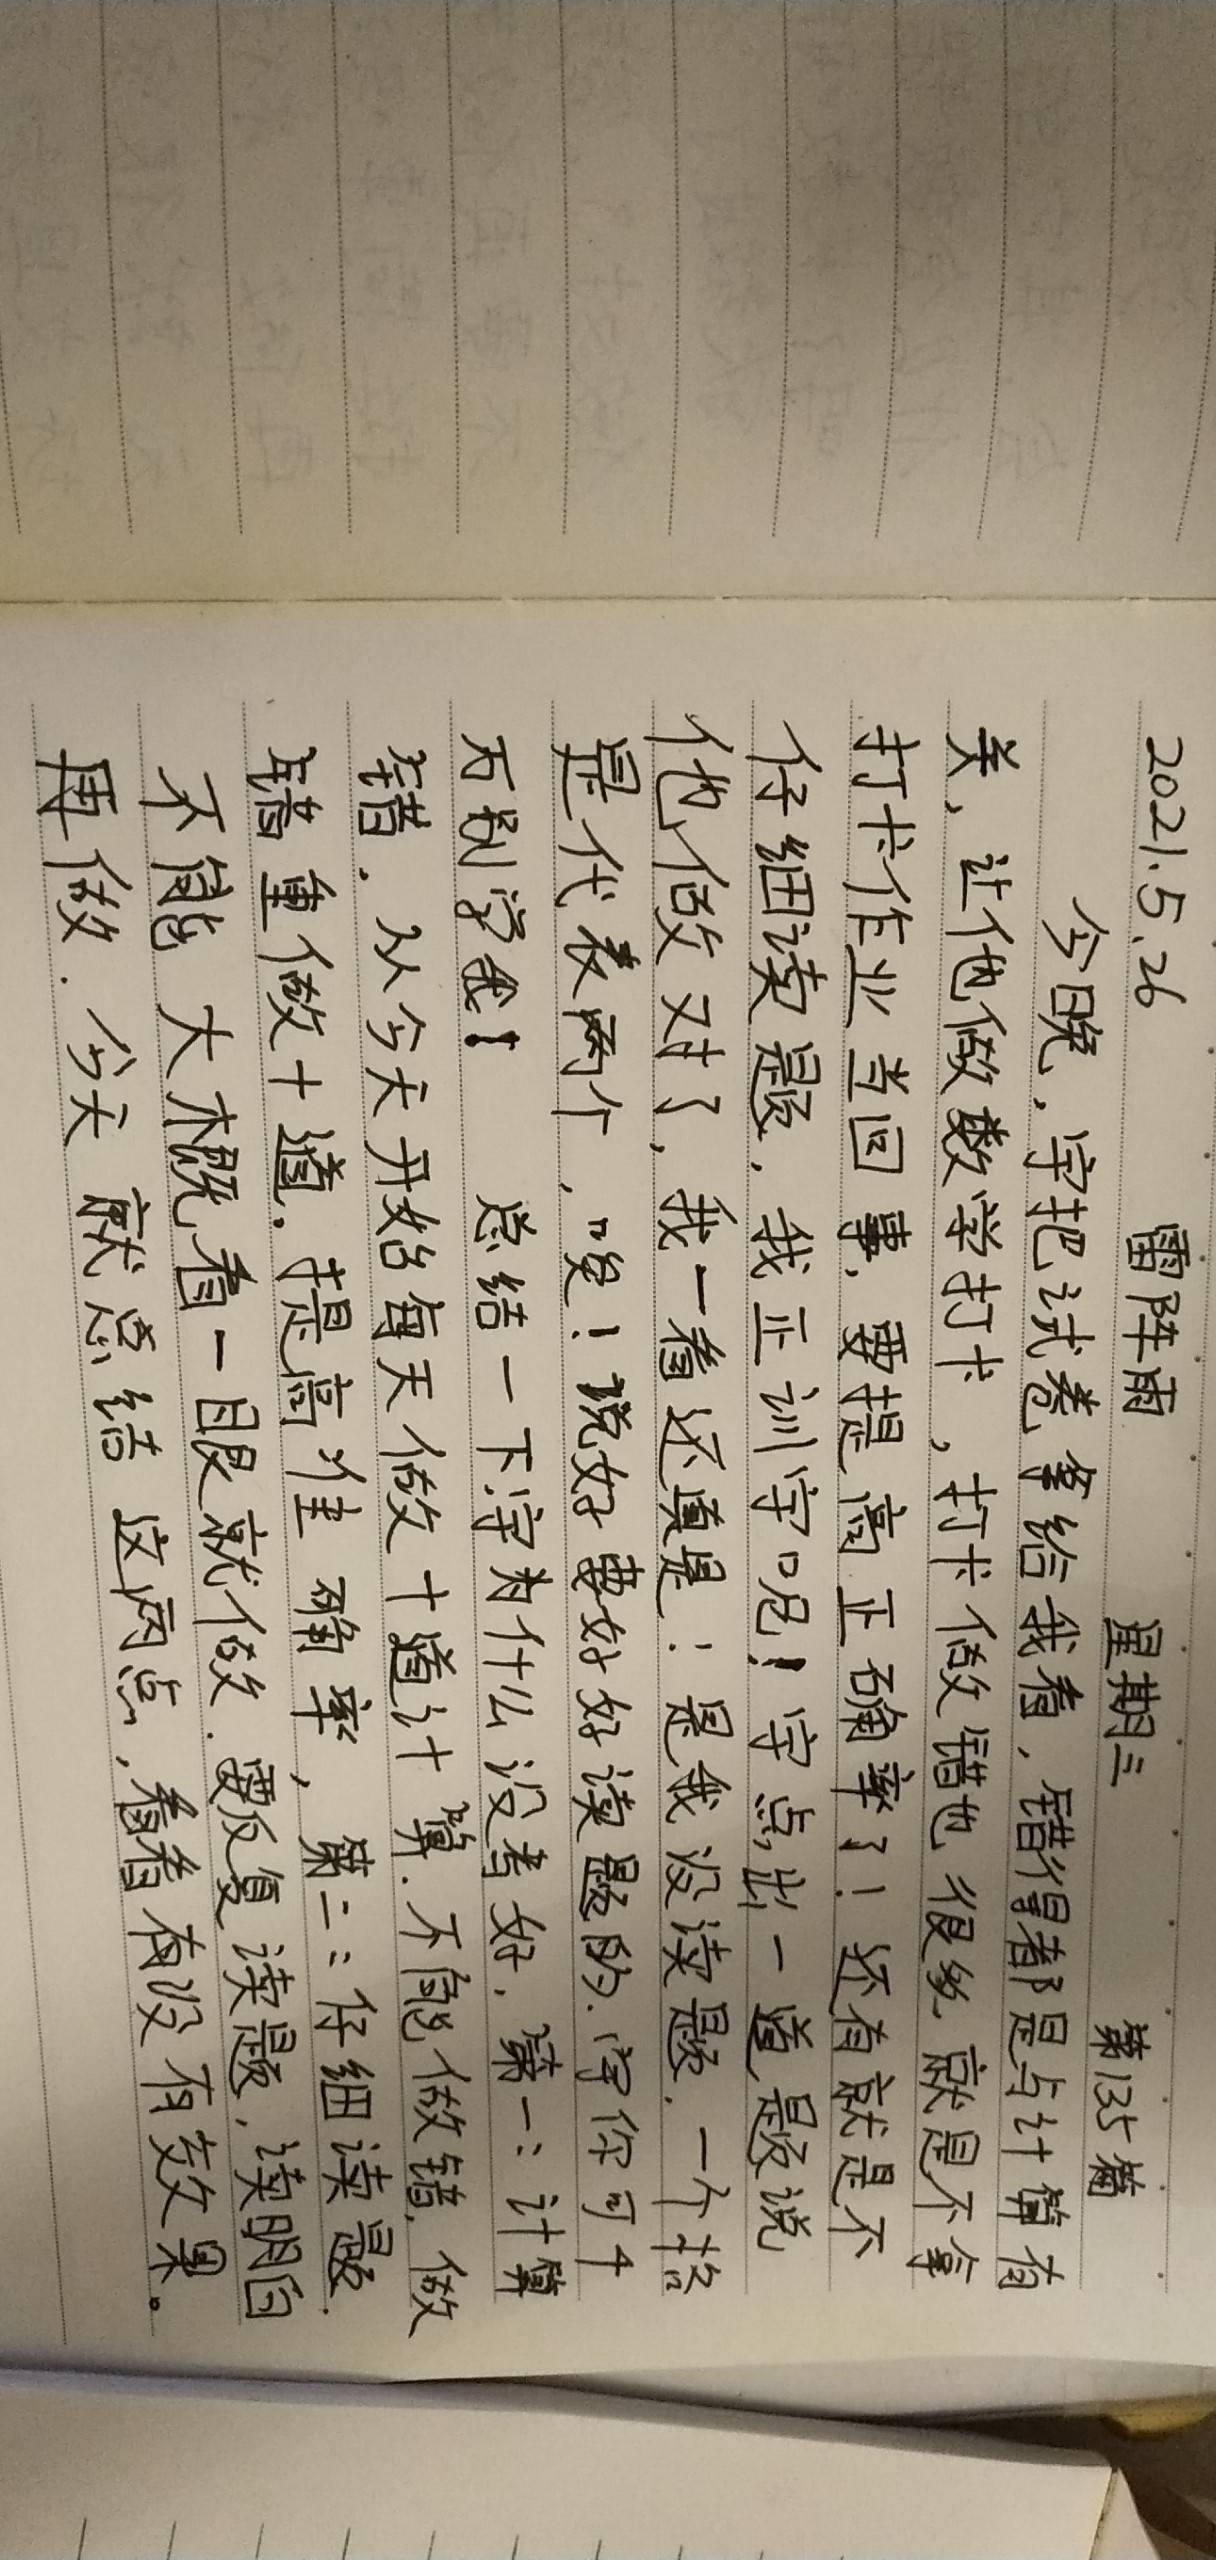 2021.5.26 雷阵雨 星期三 第135篇
今日晚，宇把试卷拿给我看，错得都是与计算有
关，让他做数学打卡，打卡做错也很多，就是不拿
打卡作业当回事，要提高正确率了！还有就是不
仔细读题，我正训宇呢！宇点出一道题说
他做对了，我一看还真是！是我没读题，一个抬
是代表两个，哎！说好要好好读题的，宇你可千
万别学我！ 总结一下宇为什么没考好，第一：计算
错，从今天开始每天做十道计算，不能做错，做
错重做十道，提高准确率，第二：仔细读题
不能大概看一眼就做，要反复读题，读明白
再做。今天就总结这两点，看看有没有效果。